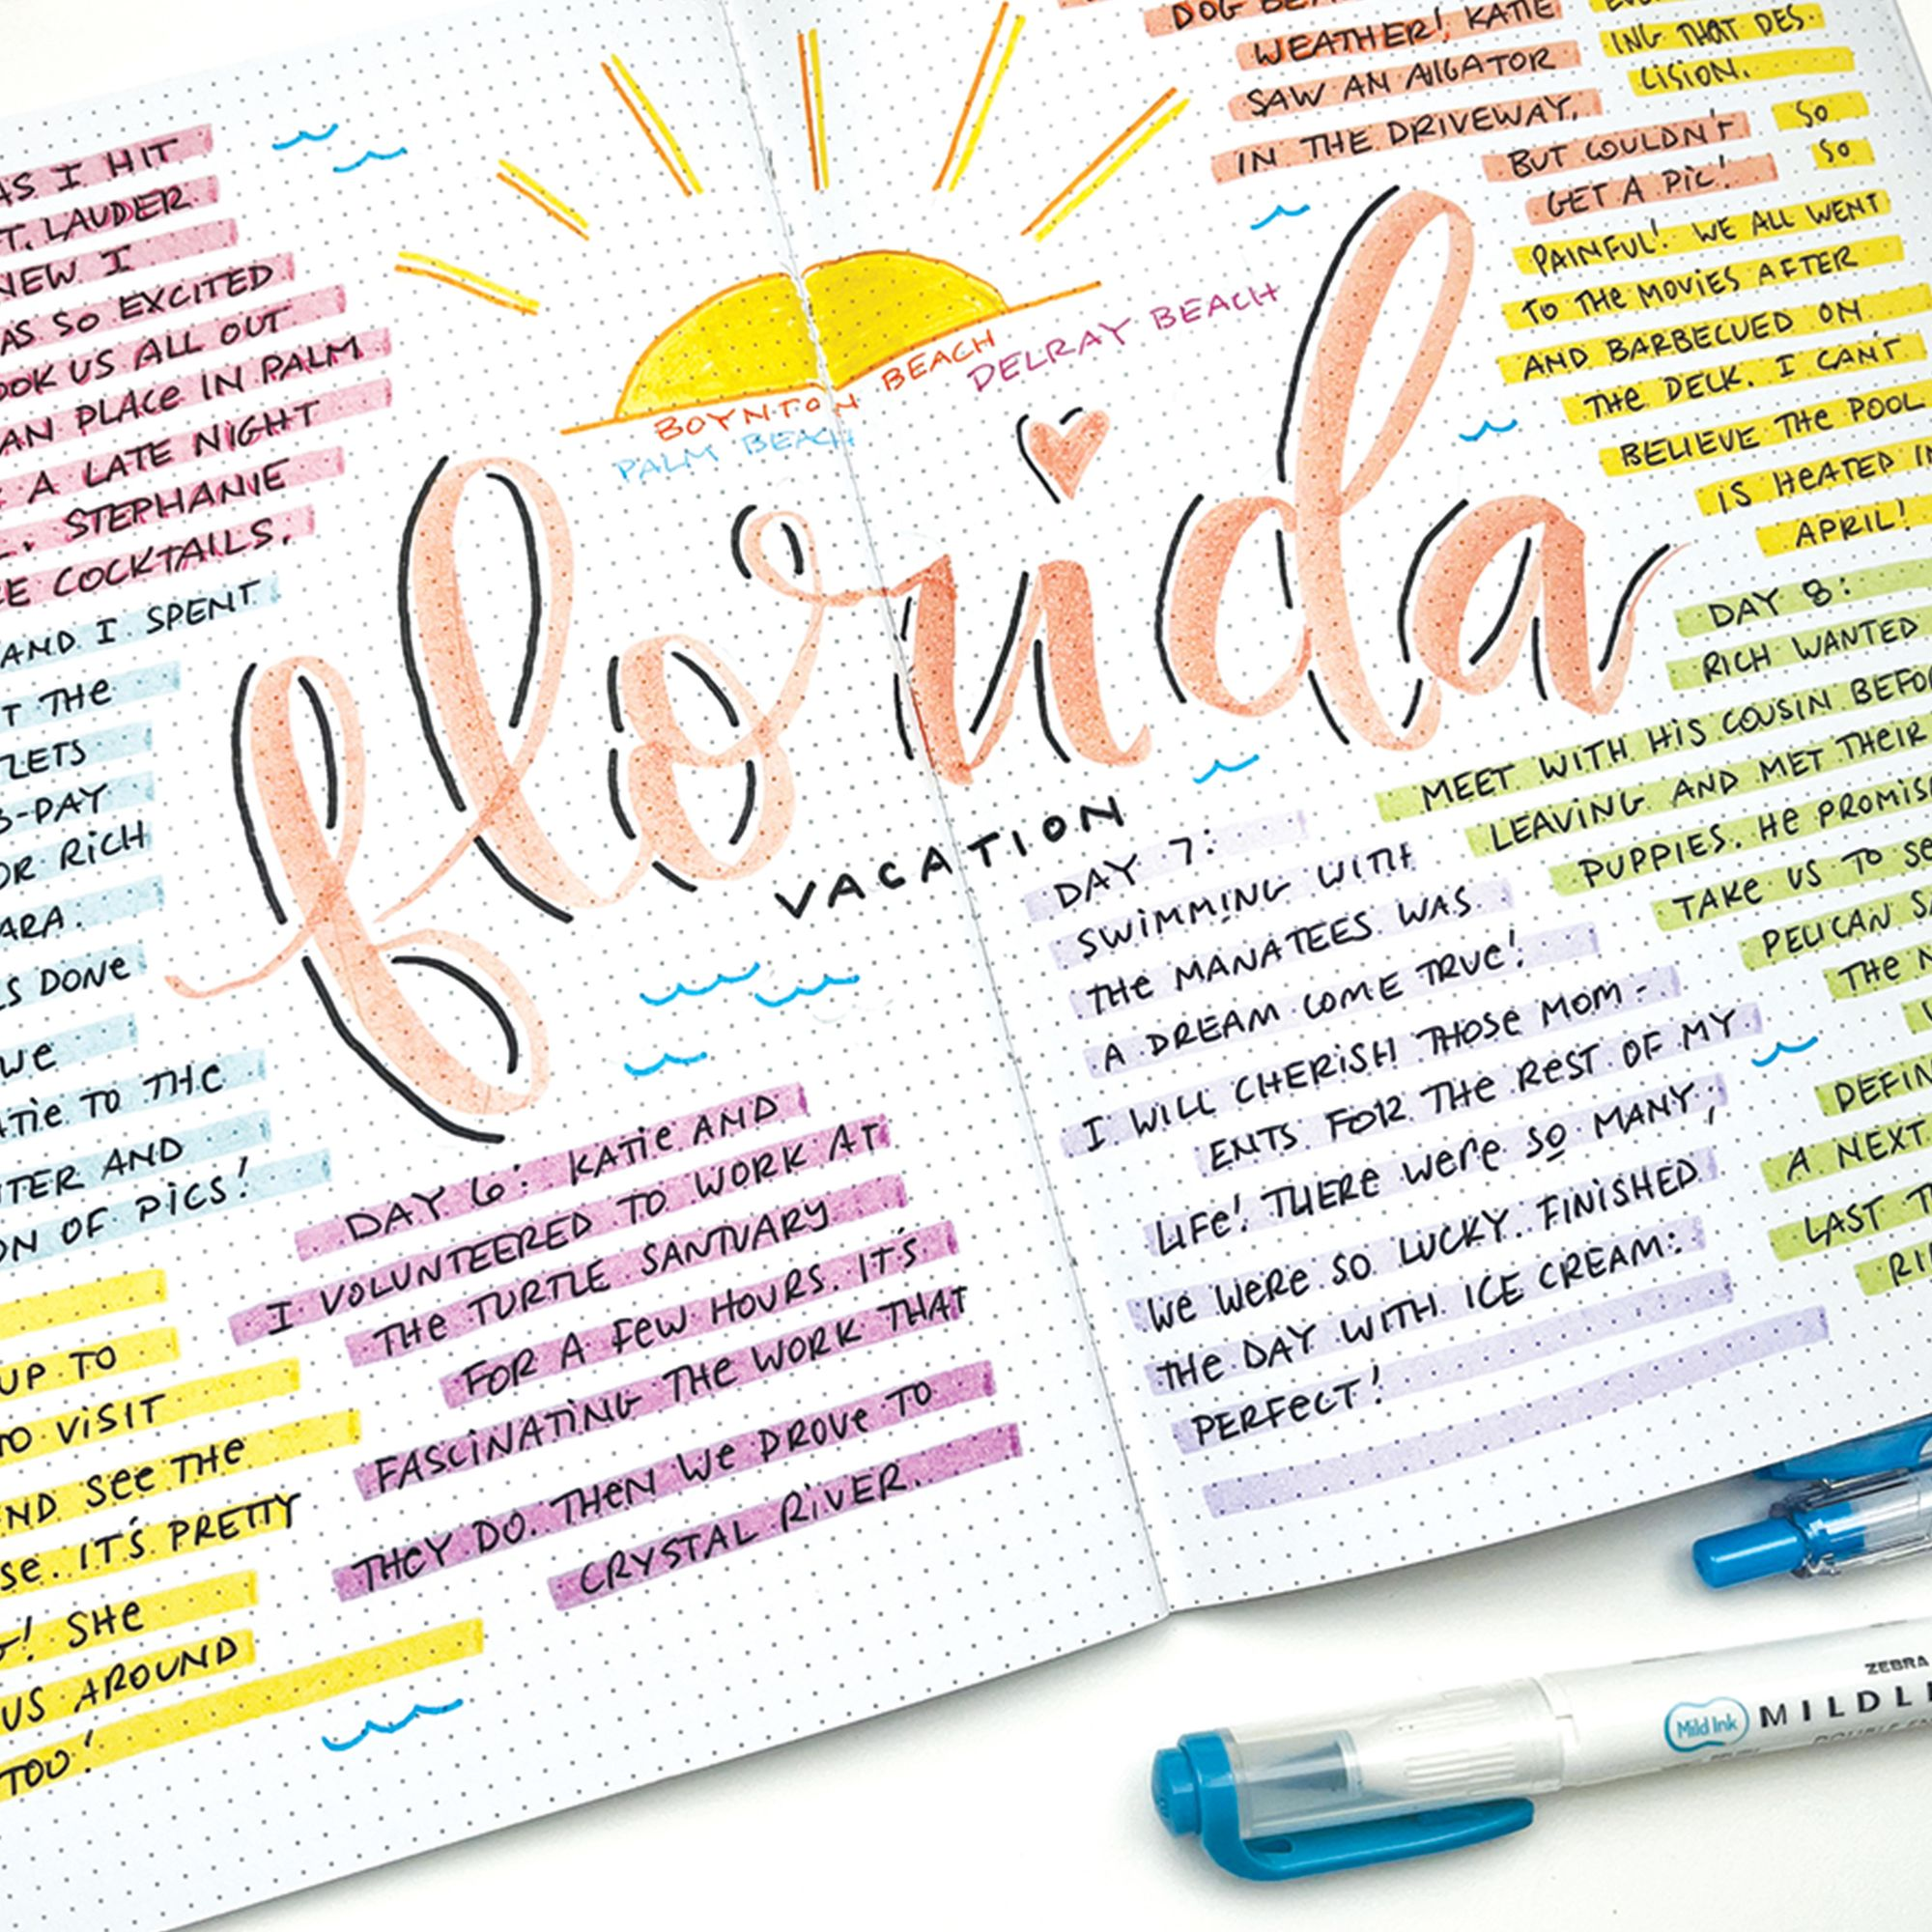 AS I HIT
T. LAUDER.
NEW I
AS SO EXCITED
OOK US ALL OUT
AN PLACE IN PALM
A LATE NIGHT
STEPHANIE
E COCKTAILS.
AND I SPENT
T THE
LETS
3-DAY
OR RICH
ARA.
LS DONE
WE
ATIE TO THE
TER AND
ON OF PICS!
UP TO
TO VISIT
ND SEE THE
SE. IT'S PRETTY
G! SHE
US AROUND
TOO!
BOYNTON BEACH
DELRAY BEACH
PALM BEACH
florida
VACATION
DAY 6: KATIE AND
I VOLUNTEERED TO WORK AT
THE TURTLE SANTUARY
FOR A FEW HOURS. IT'S
FASCINATING THE WORK THAT
THEY DO. THEN WE DROVE TO
CRYSTAL RIVER.
DOG BEA
WEATHER! KATIE
SAW AN AlIGATOR
IN THE DRIVEWAY,
BUT COULDN'T
GET A PIC!
ING THAT DES-
CISION.
SO
SO
PAINFUL! WE ALL WENT
TO THE MOVIES AFTER
AND BARBECUED ON
THE DECK. I CAN'T
BELIEVE THE POOL
IS HEATED IN
APRIL!
DAY 7:
SWIMMING WITH
THE MANATEES WAS
A DREAM COME TRUE!
I WILL CHERISH THOSE MOM-
ENTS FOR THE REST OF MY
LIFE! THERE WERE SO MANY,
WE WERE SO LUCKY. FINISHED
THE DAY WITH ICE CREAM:
PERFECT!
DAY 8:
RICH WANTED
MEET WITH HIS COUSIN BEFO
LEAVING AND MET THEIR
PUPPIES. HE PROMIS
TAKE US TO SE
PELICAN SA
THE N
DEFIN
A NEXT
LAST T
RI
ZEBRA
Mild Ink MILDLI